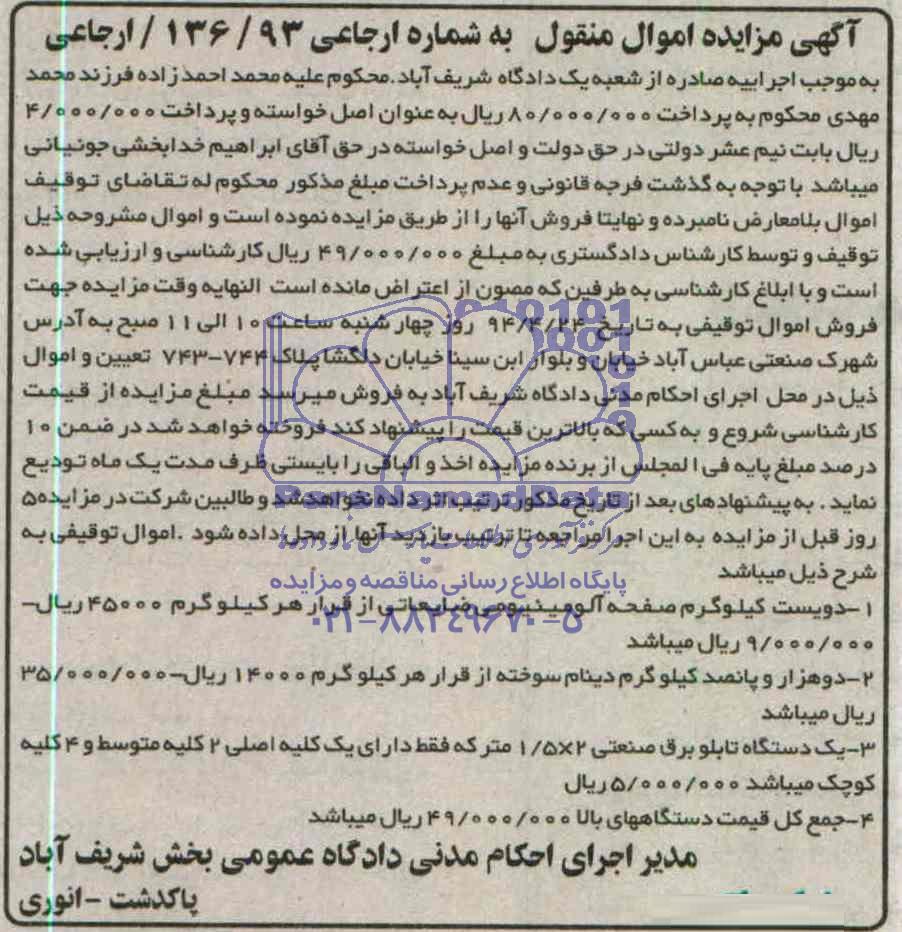 آگهی مزایده اموال منقول به شماره ارجاعی ۱۳۶/۹۳/ارجاعی
به موجب اجراییه صادره از شعبه یک دادگاه شریف آباد.محکوم علیه محمد احمدزاده فرزند محمد
مهدی محکوم به پرداخت ۸۰/۰۰۰/۰۰۰ ریال به عنوان اصل خواسته و پرداخت ۴/۰۰۰/۰۰۰
ریال بابت نیم عشر دولتی در حق دولت و اصل خواسته در حق آقای ابراهیم خدابخشی جونیانی
میباشد با توجه به گذشت فرجه قانونی و عدم پرداخت مبلغ مذکور محکوم له تقاضای توقیف
اموال بلامعارض نامبرده و نهایتا فروش آنها را از طریق مزایده نموده است و اموال مشروحه ذیل
توقیف و توسط کارشناس دادگستری به مبلغ ۴۹/۰۰۰/۰۰۰ ریال کارشناسی و ارزیابی شده
است و با ابلاغ کارشناسی به طرفین که مصون از اعتراض مانده است النهایه وقت مزایده جهت
فروش اموال توقیفی به تاریخ ۹۴/۴/۲۴ روز چهار شنبه ساعت ۱۰ الی ۱۱ صبح به آدرس
شهرک صنعتی عباس آباد خیابان و بلوار ابن سینا خیابان دلگشا پلاک ۷۴۴-۷۴۳ تعیین و اموال
ذیل در محل اجرای احکام مدنی دادگاه شریف آباد به فروش میرسد مبلغ مزایده از قیمت
کارشناسی شروع و به کسی که بالاترین قیمت را پیشنهاد کند فروخته خواهد شد در ضمن ۱۰
درصد مبلغ پایه فی المجلس از برنده مزایده اخذ و الباقی را بایستی ظرف مدت یک ماه تودیع
نماید . به پیشنهادهای بعد از تاریخ مذکور ترتیب اثر داده نخواهد شد و طالبین شرکت در مزایده ۵
روز قبل از مزایده به این اجرا مراجعه تا ترتیب بازدید آنها از محل داده شود .اموال توقیفی به
شرح ذیل میباشد
پایگاه اطلاع رسانی مناقصه و مزایده
۱-دویست کیلوگرم صفحه آلومینیومی ضایعاتی از قرار هر کیلو گرم ۴۵۰۰۰ ریال-
۰۲۱-۸۸۳۴۹۶۷۰-۵
۹/۰۰۰/۰۰۰ ریال میباشد
۲-دوهزار و پانصد کیلو گرم دینام سوخته از قرار هر کیلو گرم ۱۴۰۰۰ ریال-۳۵/۰۰۰/۰۰۰
ریال میباشد
۳-یک دستگاه تابلو برق صنعتی ۲×۱/۵ متر که فقط دارای یک کلیه اصلی ۲ کلیه متوسط و ۴ کلیه
کوچک میباشد ۵/۰۰۰/۰۰۰ ریال
۴-جمع کل قیمت دستگاههای بالا ۴۹/۰۰۰/۰۰۰ ریال میباشد
مدیر اجرای احکام مدنی دادگاه عمومی بخش شریف آباد
پاکدشت -انوری